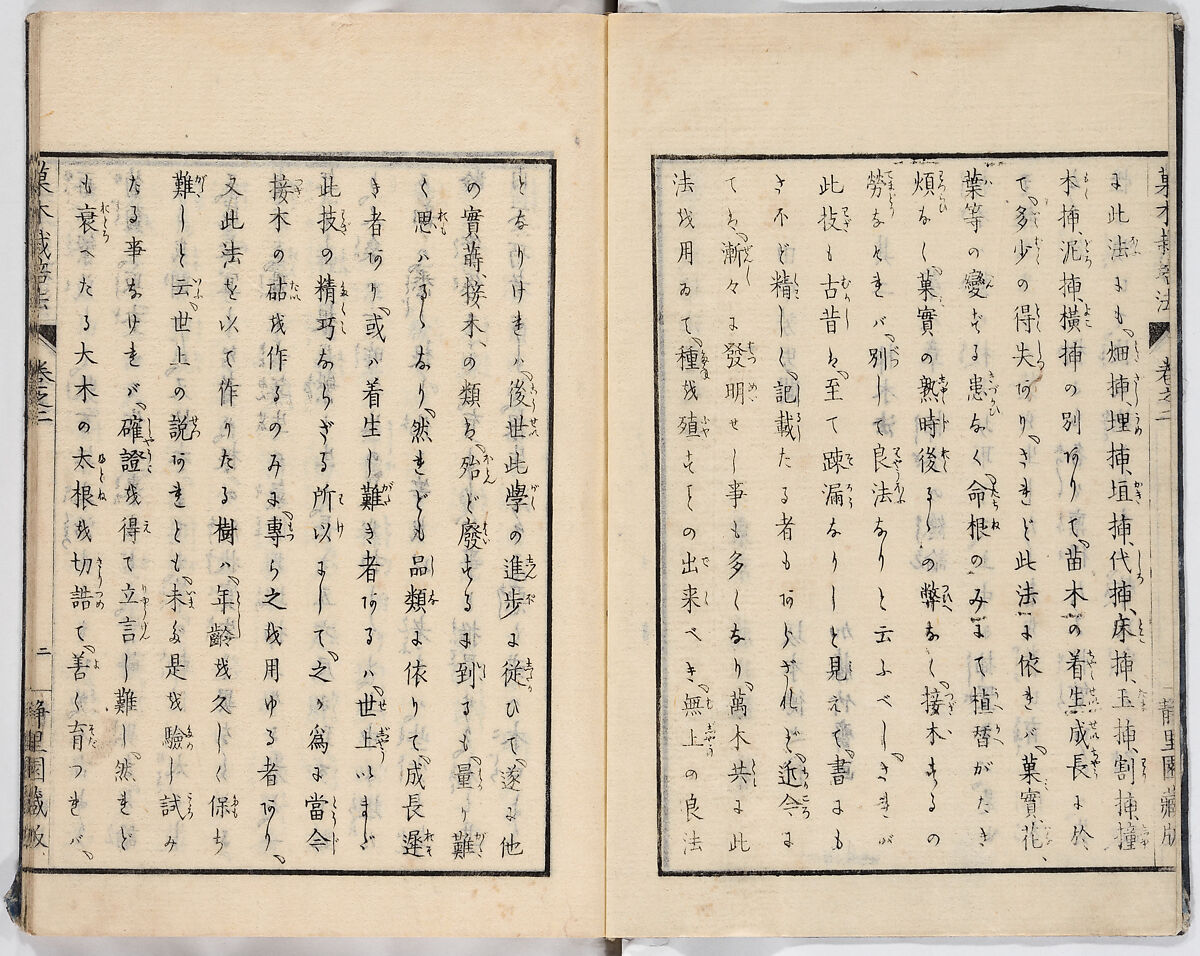 菓木栽培法 卷之二 靜里園藏版
に此法にも、畑挿、埋挿、垣挿、代挿、床挿、玉挿、割挿、撞
木挿、泥挿、横挿の別ありて、苗木の着生成長に於
て、多少の得失あり、されど此法に依れバ、菓實、花、
葉等の變ずる患なく、命根のみにて植替がたき
煩なく、菓實の熟時後るゝの弊なく、接木するの
勞なけれバ、別して良法なりと云ふべし、されバ
此技も古昔は、至て踈漏なりしと見えて、書にも
さ不ど精しく記載たる者もあらざれど、近今に
ては漸々に發明せし事も多くなり、萬木共に此
法を用ゐて、種を殖すその出来べき、無上の良法
となりけれハ、後世此學の進歩に從ひて、遂に他
の實蒔、接木、の類は、殆ど廢するに到るも、量り難
く思ハるゝなり、然れども品類に依りて、成長遲
き者あり、或ハ着生し難き者あるハ、世上いまだ
此技の精巧ならざる所以にして、之が爲に當今
接木の砧を作るのみに、專ら之を用ゆる者あり、
又此法を以て作りたる樹ハ、年齡を久しく保ち
難しと云、世上の説あれとも、未だ是を驗し試み
たる事なけれバ、確證を得て立言し難し、然れど
も衰へたる大木の太根を切詰て、善く育つれバ、
菓木栽培法 卷之二 二 靜里園藏版